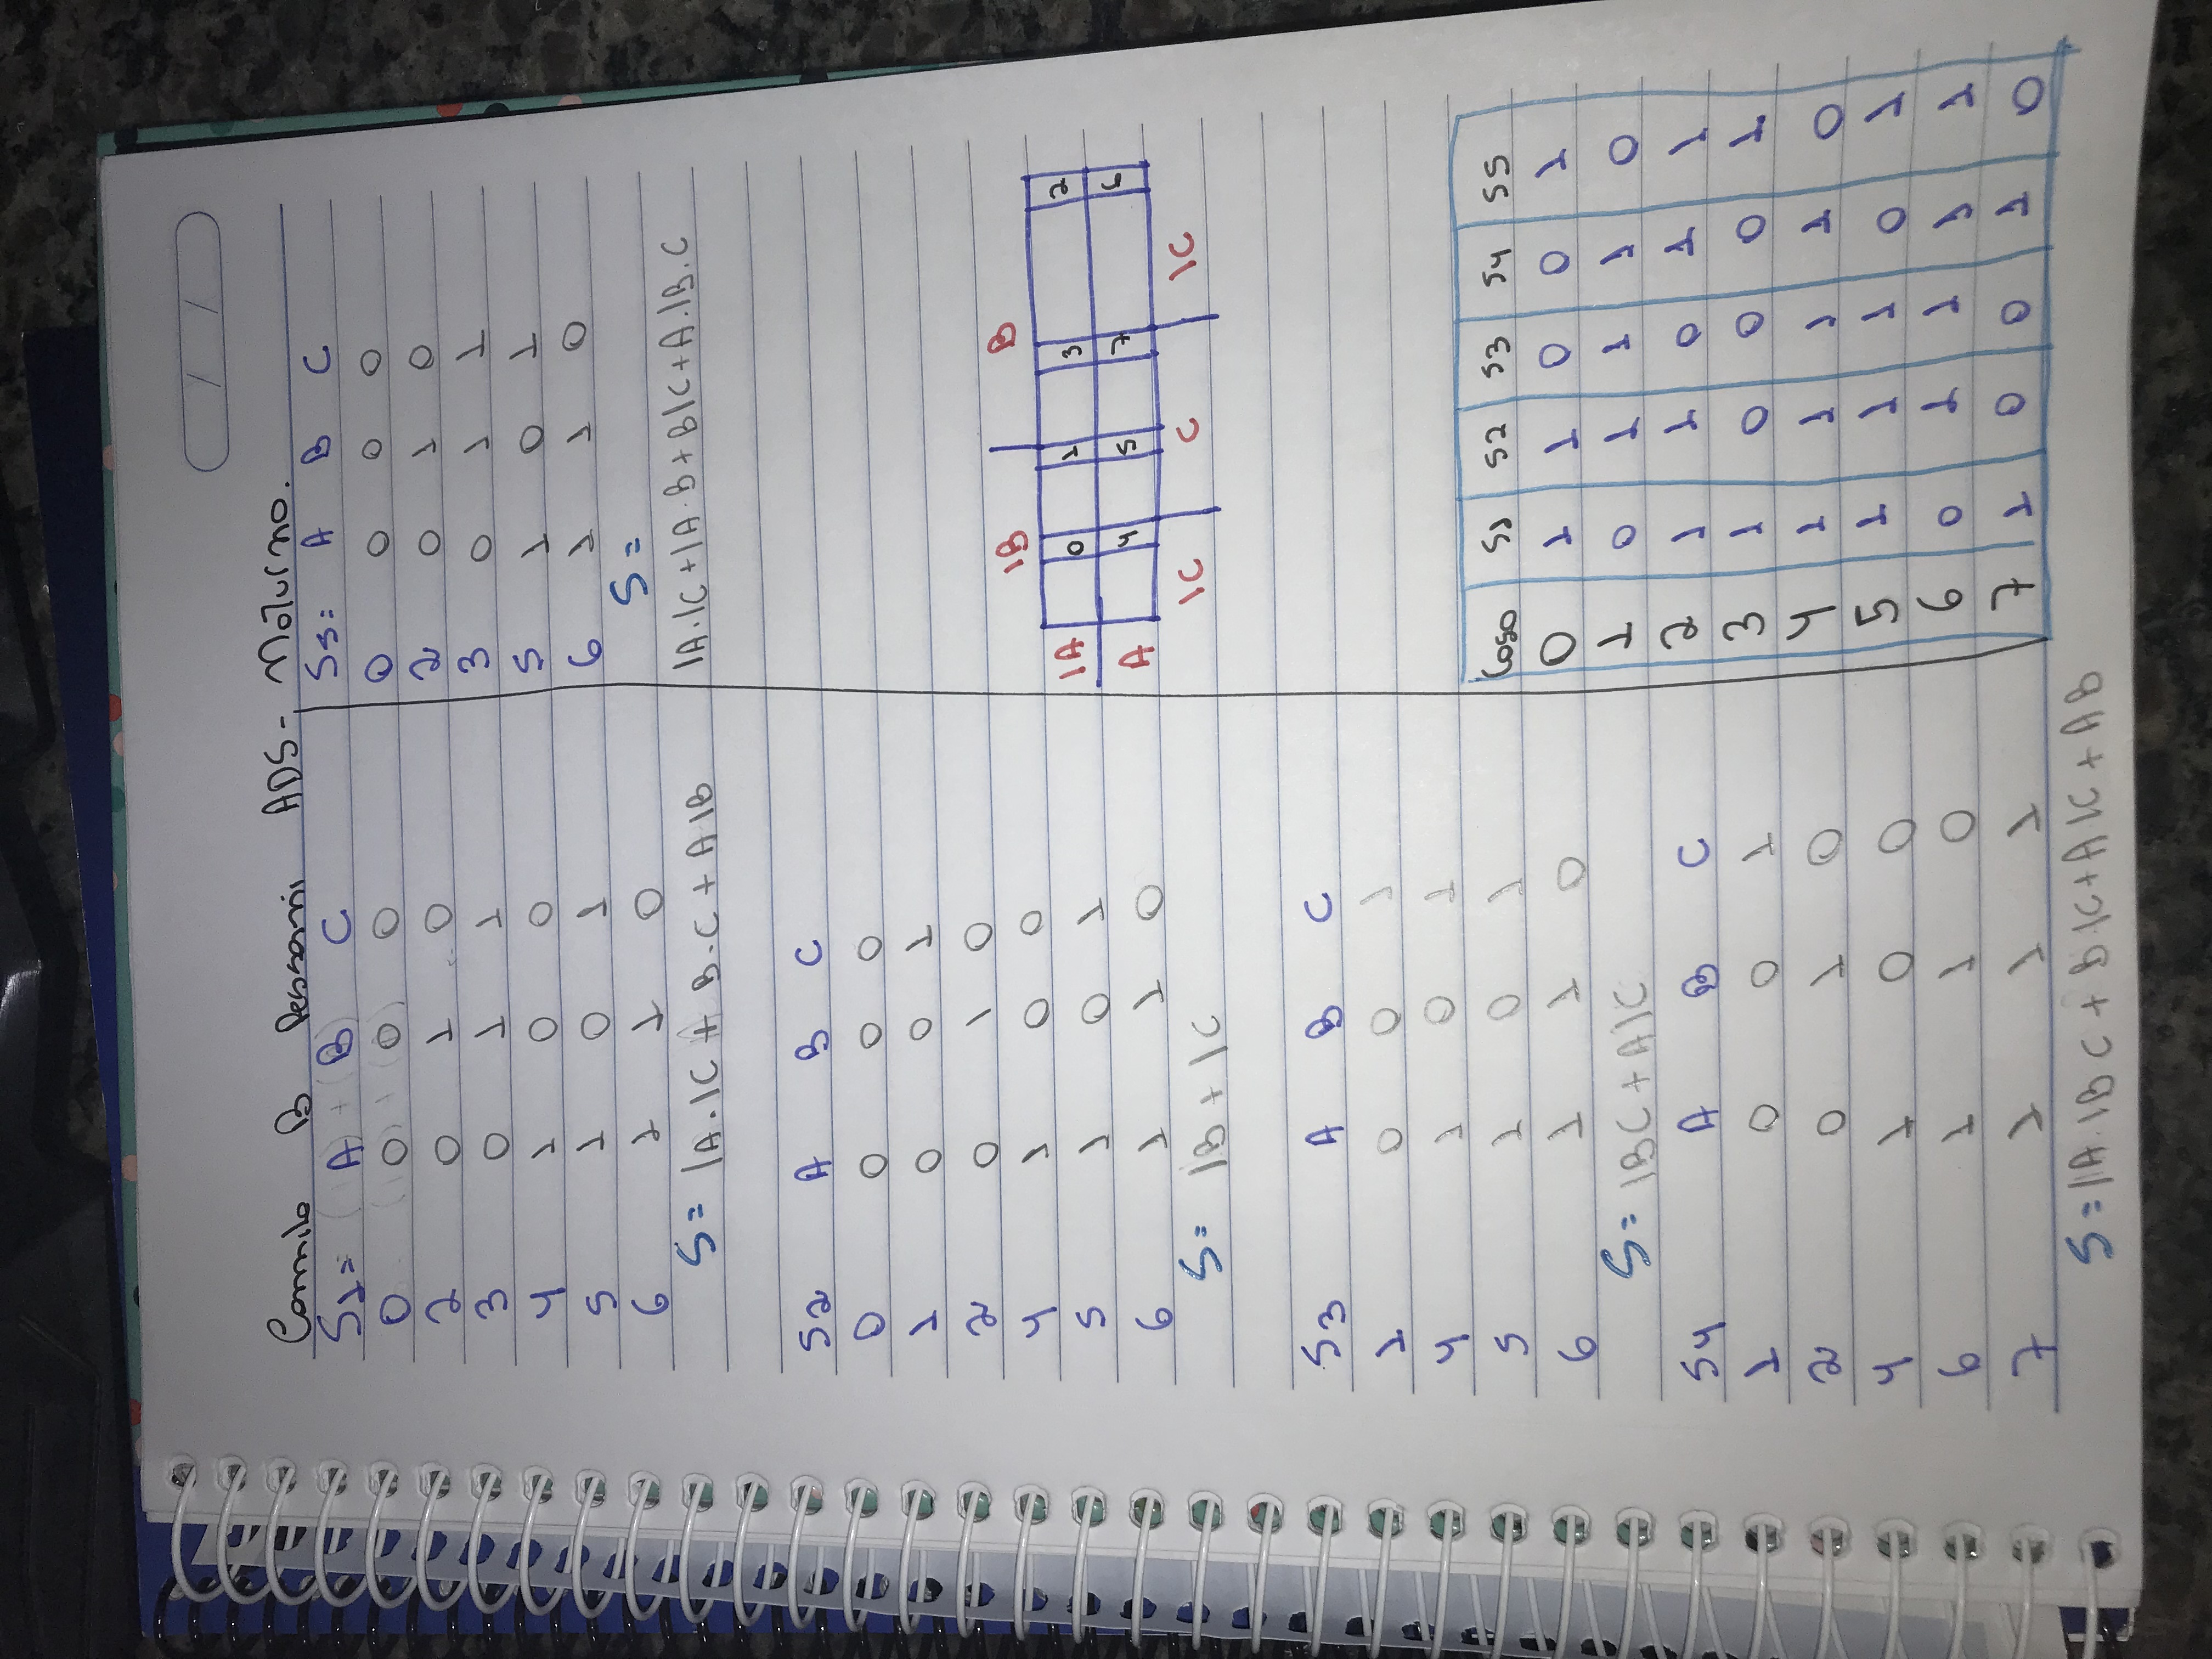 Camila B Pessani ADS- Noturno.
S1= A B C
0 0 0 0
2 0 1 0
3 0 1 1
4 1 0 0
5 1 0 1
6 1 1 0
S= |A.|C + B.C + A|B
S2 A B C
0 0 0 0
1 0 0 1
2 0 1 0
4 1 0 0
5 1 0 1
6 1 1 0
S= |B + |C
S3 A B C
1 0 0 1
4 1 0 1
5 1 0 1
6 1 1 0
S= |BC + A|C
S4 A B C
1 0 0 1
2 0 1 0
4 1 0 0
6 1 1 0
7 1 1 1
S=|A.|BC + B|C+A|C + AB
S5: A B C
0 0 0 0
2 0 1 0
3 0 1 1
5 1 0 1
6 1 1 0
S=
|A.|C+|A.B+B|C+A.|B.C
|B B
|A 0 1 3 2
A 4 5 7 6
|C C |C
Caso S1 S2 S3 S4 S5
0 1 1 0 0 1
1 0 1 1 1 0
2 1 1 0 1 1
3 1 0 0 0 1
4 1 1 1 1 0
5 1 1 1 0 1
6 0 1 1 1 1
7 1 0 0 1 0